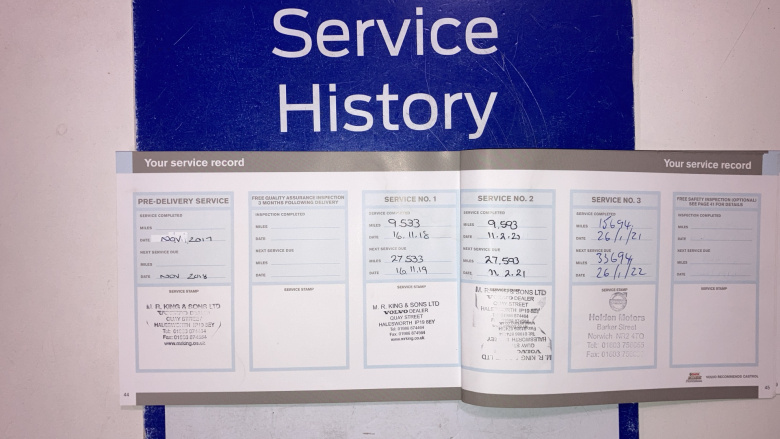 Service
History
Your service record
Your service record
PRE-DELIVERY SERVICE
SERVICE COMPLETED
MILES
DATE NOV 2017
NEXT SERVICE DUE
MILES
DATE NOV 2018
SERVICE STAMP
M. R. KING & SONS LTD
QUAY STREET
HALESWORTH IP19 8EY
Tel: 01986 874464
www.mrking.co.uk
FREE QUALITY ASSURANCE INSPECTION
3 MONTHS FOLLOWING DELIVERY
INSPECTION COMPLETED
MILES
DATE
NEXT SERVICE DUE
MILES
DATE
SERVICE STAMP
SERVICE NO. 1
SERVICE COMPLETED
MILES 9,533
DATE 16.11.18
NEXT SERVICE DUE
MILES 27,533
DATE 16.11.19
SERVICE STAMP
M. R. KING & SONS LTD
VOLVO DEALER
QUAY STREET
HALESWORTH IP19 8EY
Tel: 01986 874464
www.mrking.co.uk
SERVICE NO. 2
SERVICE COMPLETED
MILES 9,593
DATE 11.2.20
NEXT SERVICE DUE
MILES 27,593
DATE 11.2.21
SERVICE STAMP
M. R. KING & SONS LTD
VOLVO DEALER
QUAY STREET
SERVICE NO. 3
SERVICE COMPLETED
MILES 15694
DATE 26/1/21
NEXT SERVICE DUE
MILES 33694
DATE 26/1/22
SERVICE STAMP
Holden Motors
Barker Street
Norwich NR2 4TQ
Tel: 01603
Fax: 01603
FREE SAFETY INSPECTION (OPTIONAL)
SEE PAGE 41 FOR DETAILS
INSPECTION COMPLETED
MILES
DATE
NEXT SERVICE DUE
MILES
DATE
SERVICE STAMP
VOLVO RECOMMENDS CASTROL
44
45